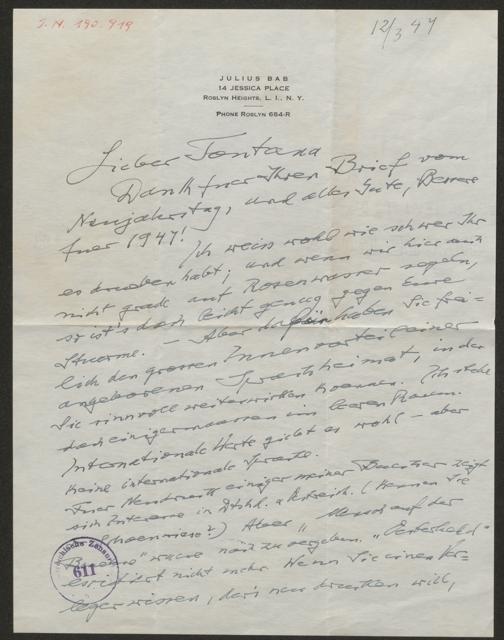 I.N. 190.919
12/3 47
JULIUS BAB
14 JESSICA PLACE
ROSLYN HEIGHTS, L. I., N. Y.
PHONE ROSLYN 684-R
Lieber Fontana
Dank fuer Ihren Brief vom
Neujahrstag, und alles Gute, Bessere
fuer 1947!
Ich weiss wohl wie schwer Ihr
es drueben habt; und wenn wir hier auch
nicht grade auf Rosenwasser segeln,
so ist's doch leicht genug gegen Eure
Stuerme. — Aber dafür haben Sie frei-
lich den grossen Innenvorteil einer
angeborenen Sprachheimat, in der
Sie sinnvoll weiterwirken koennen. Ich stehe
doch einigermaassen im leeren Raum.
Internationale Werte giebt es wohl — aber
keine internationale Sprache.
Fuer Neudruck einiger meiner Buecher zeigt
sich Interesse in Dtschl. u. Östreich. (Kennen Sie
?) Aber „Mensch auf der
Buehne" waere noch zu vergeben.
existiert nicht mehr. Wenn Sie einen Ver=
leger wissen, der's neu drucken will,
611